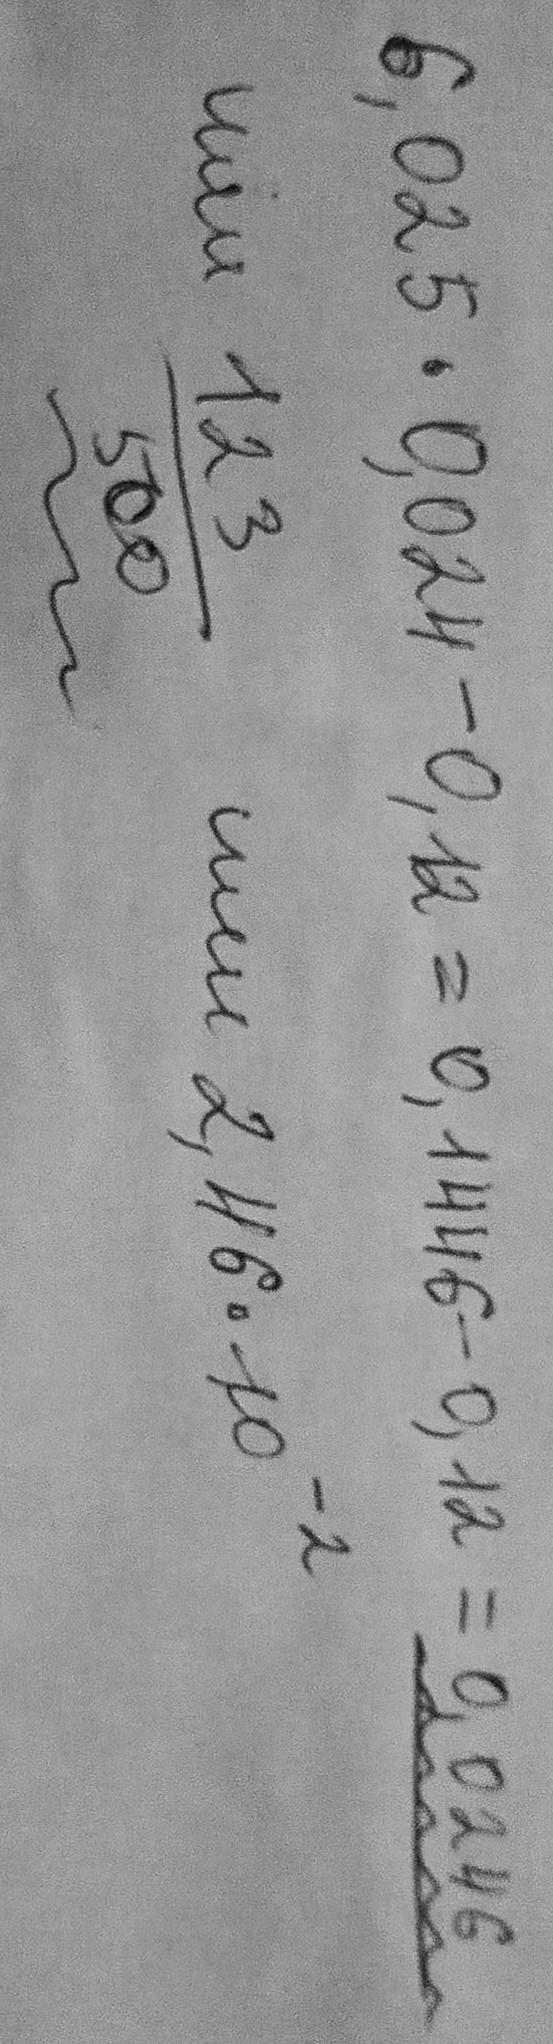 6,025 · 0,024 - 0,12 = 0,1446 - 0,12 = 0,0246
или 123/500 или 2,46 · 10⁻²